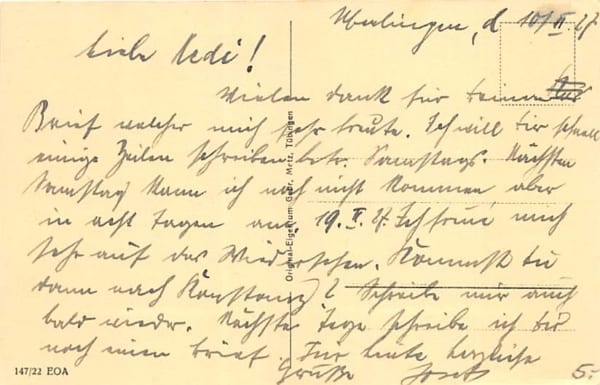 Überlingen, d. 10/II. 27
Liebe Hedi!
Vielen dank für deinen
Brief welcher mich sehr freute. Ich will dir schnell
einige Zeilen schreiben betr. Samstags. Nächsten
Samstag kann ich noch nicht kommen, aber
in acht Tagen am 19. II. 27. Ich freue mich
sehr auf das Wiedersehen. Kommst du
dann nach Konstanz? Schreibe mir auch
bald wieder. Nächste Tage schreibe ich dir
noch einen Brief. Für heute herzliche
Grüße Josef
Original-Eigentum Gebr. Metz, Tübingen
147/22 EOA
5.-